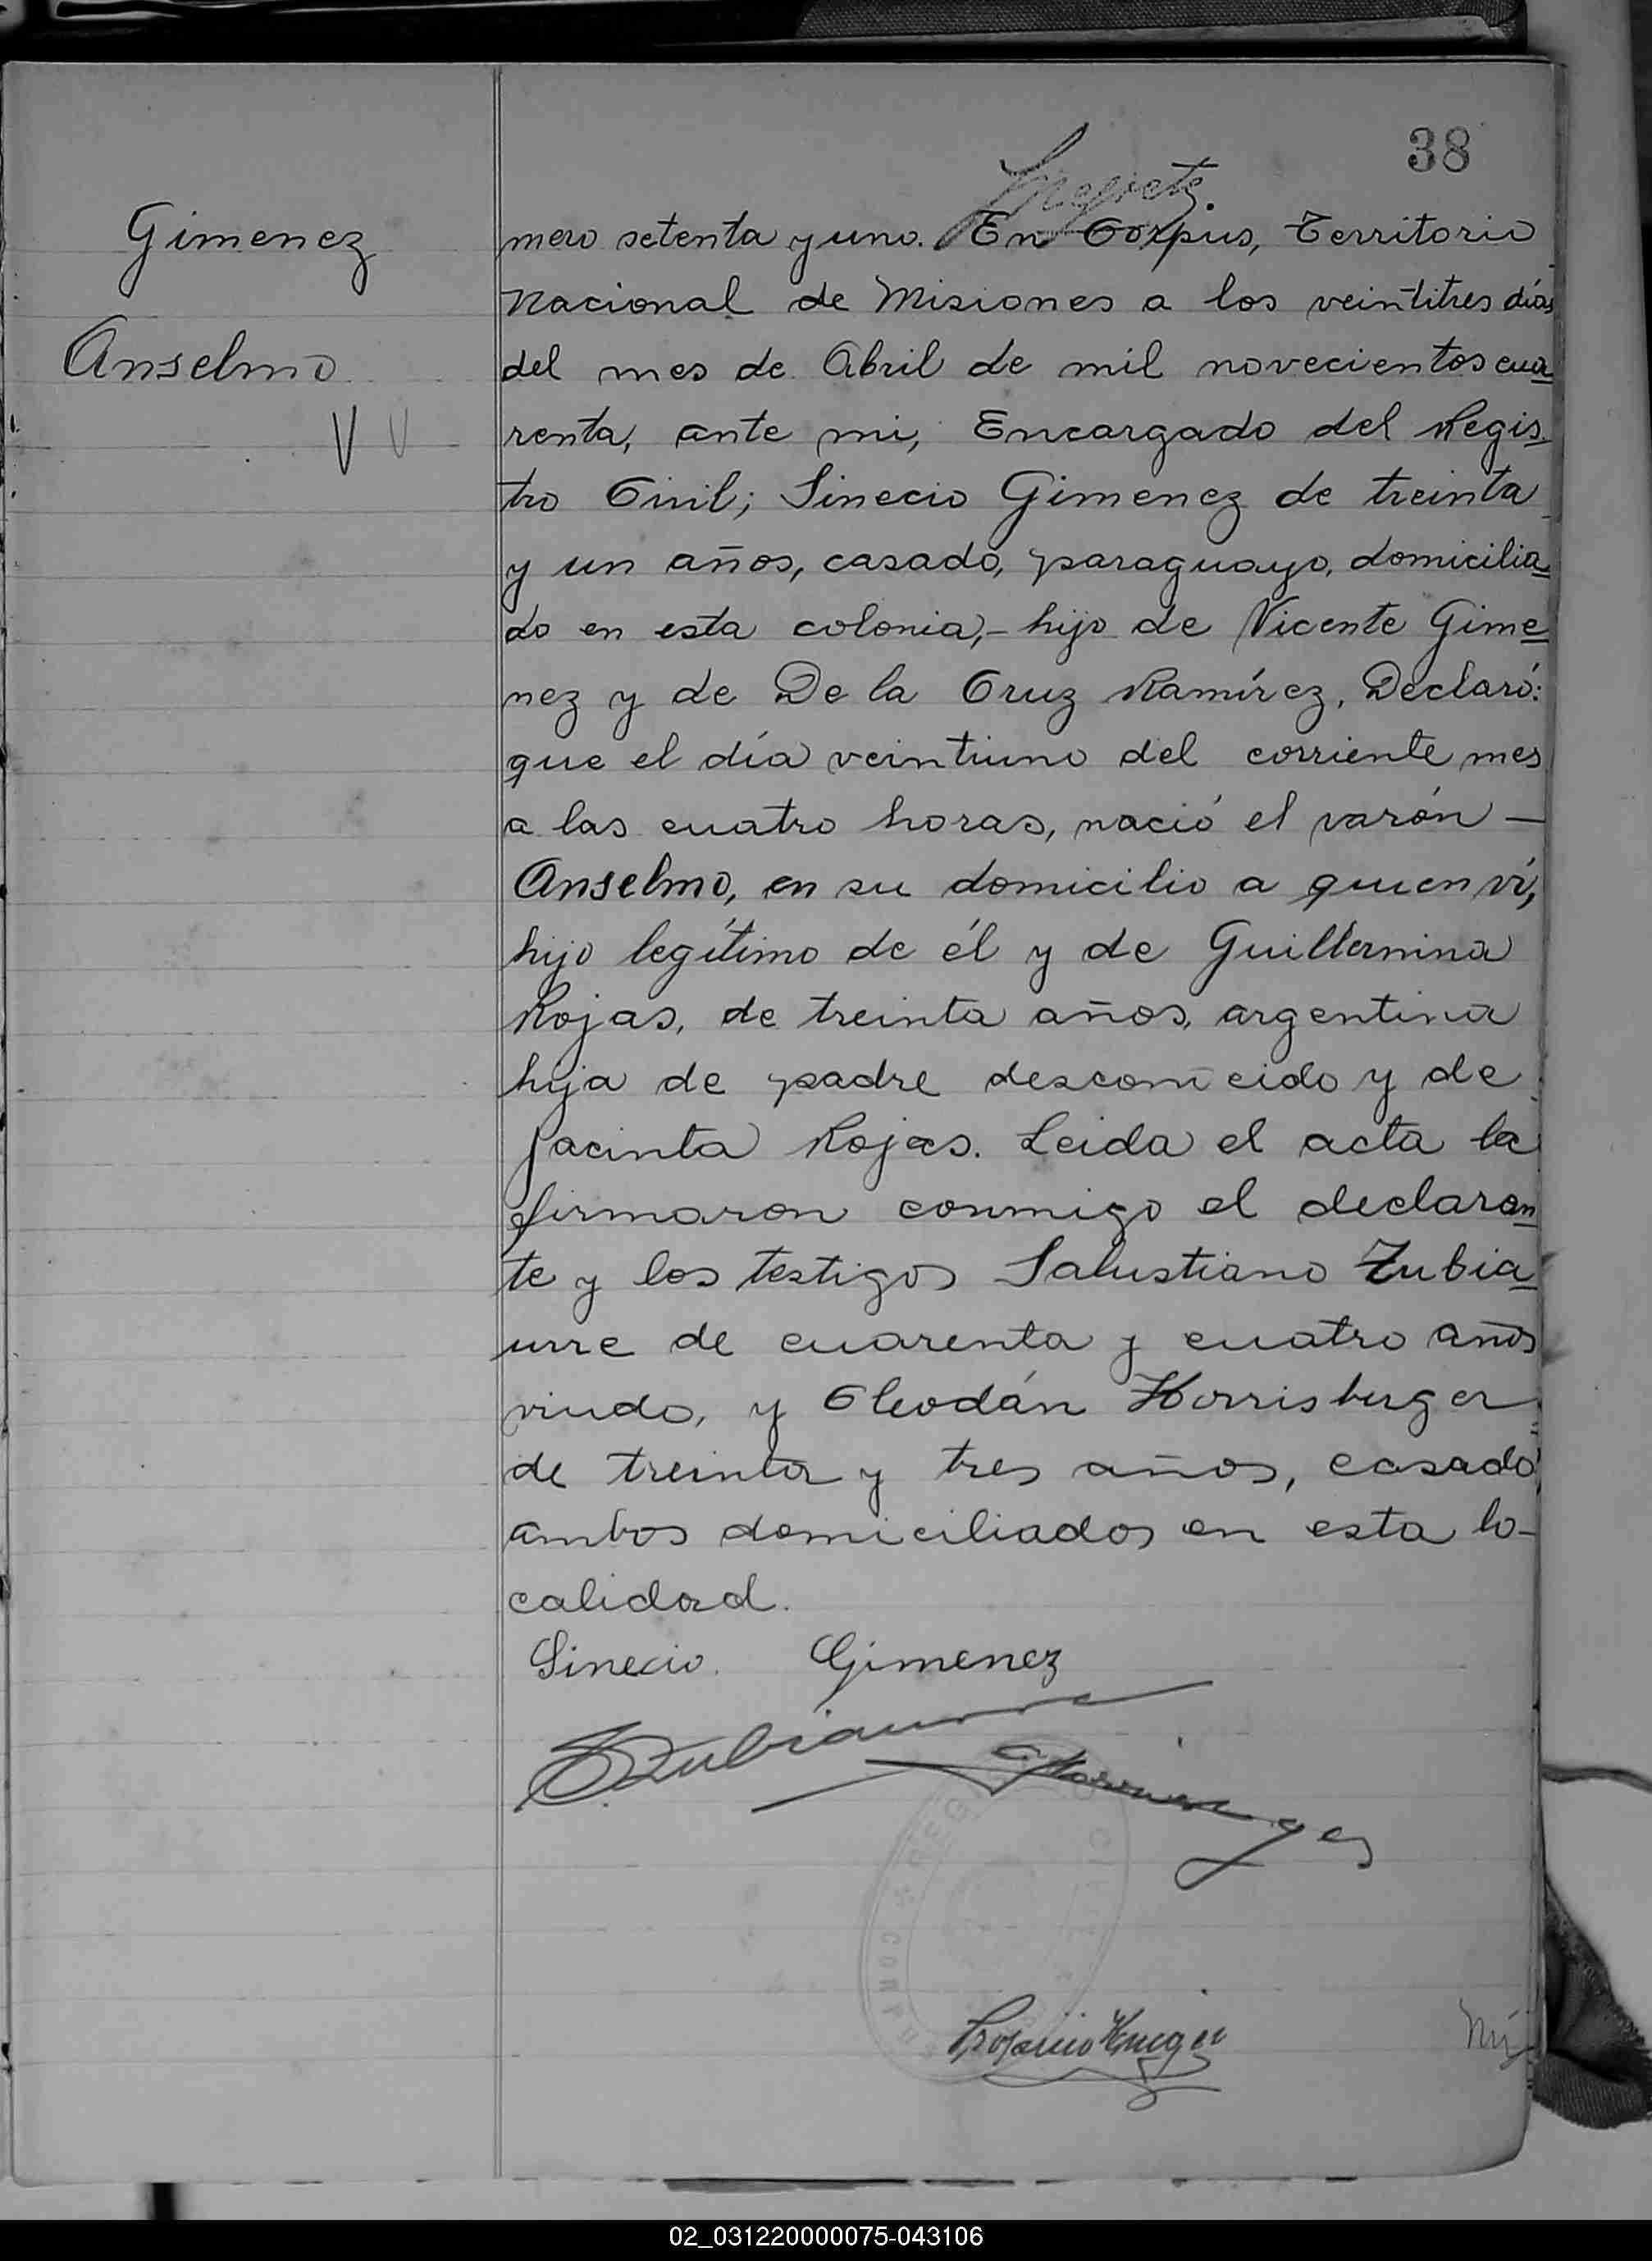 38
Gimenez
Anselmo
mero setenta y uno. En Corpus, Territorio
Nacional de Misiones a los veintitres días
del mes de Abril de mil novecientos cua
renta, ante mi, Encargado del Regis
tro Civil; Sinecio Gimenez de treinta
y un años, casado, paraguayo, domicilia
do en esta colonia, - hijo de Vicente Gime
nez y de De la Cruz Ramírez, Declaró:
que el día veintiuno del corriente mes
a las cuatro horas, nació el varón —
Anselmo, en su domicilio a quien ví,
hijo legítimo de él y de Guillermina
Rojas, de treinta años, argentina
hija de padre desconocido y de
Jacinta Rojas. Leida el acta la
firmaron conmigo el declaran
te y los testigos Salustiano Zubia
urre de cuarenta y cuatro años
viudo, y Cleodán Horrisberger
de treinta y tres años, casado,
ambos domiciliados en esta lo-
calidad.
Sinecio Gimenez
SZubiaurre
02_031220000075-043106